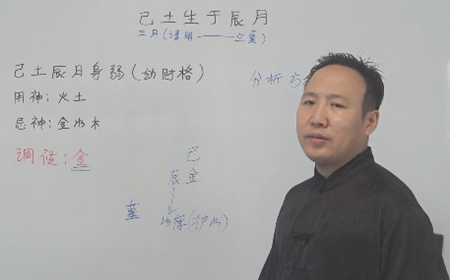 己土生于辰月
三月(清明——立夏)
己土辰月身弱(劫财格)
用神:火土
忌神:金水木
调候:金
分析
己
辰 金